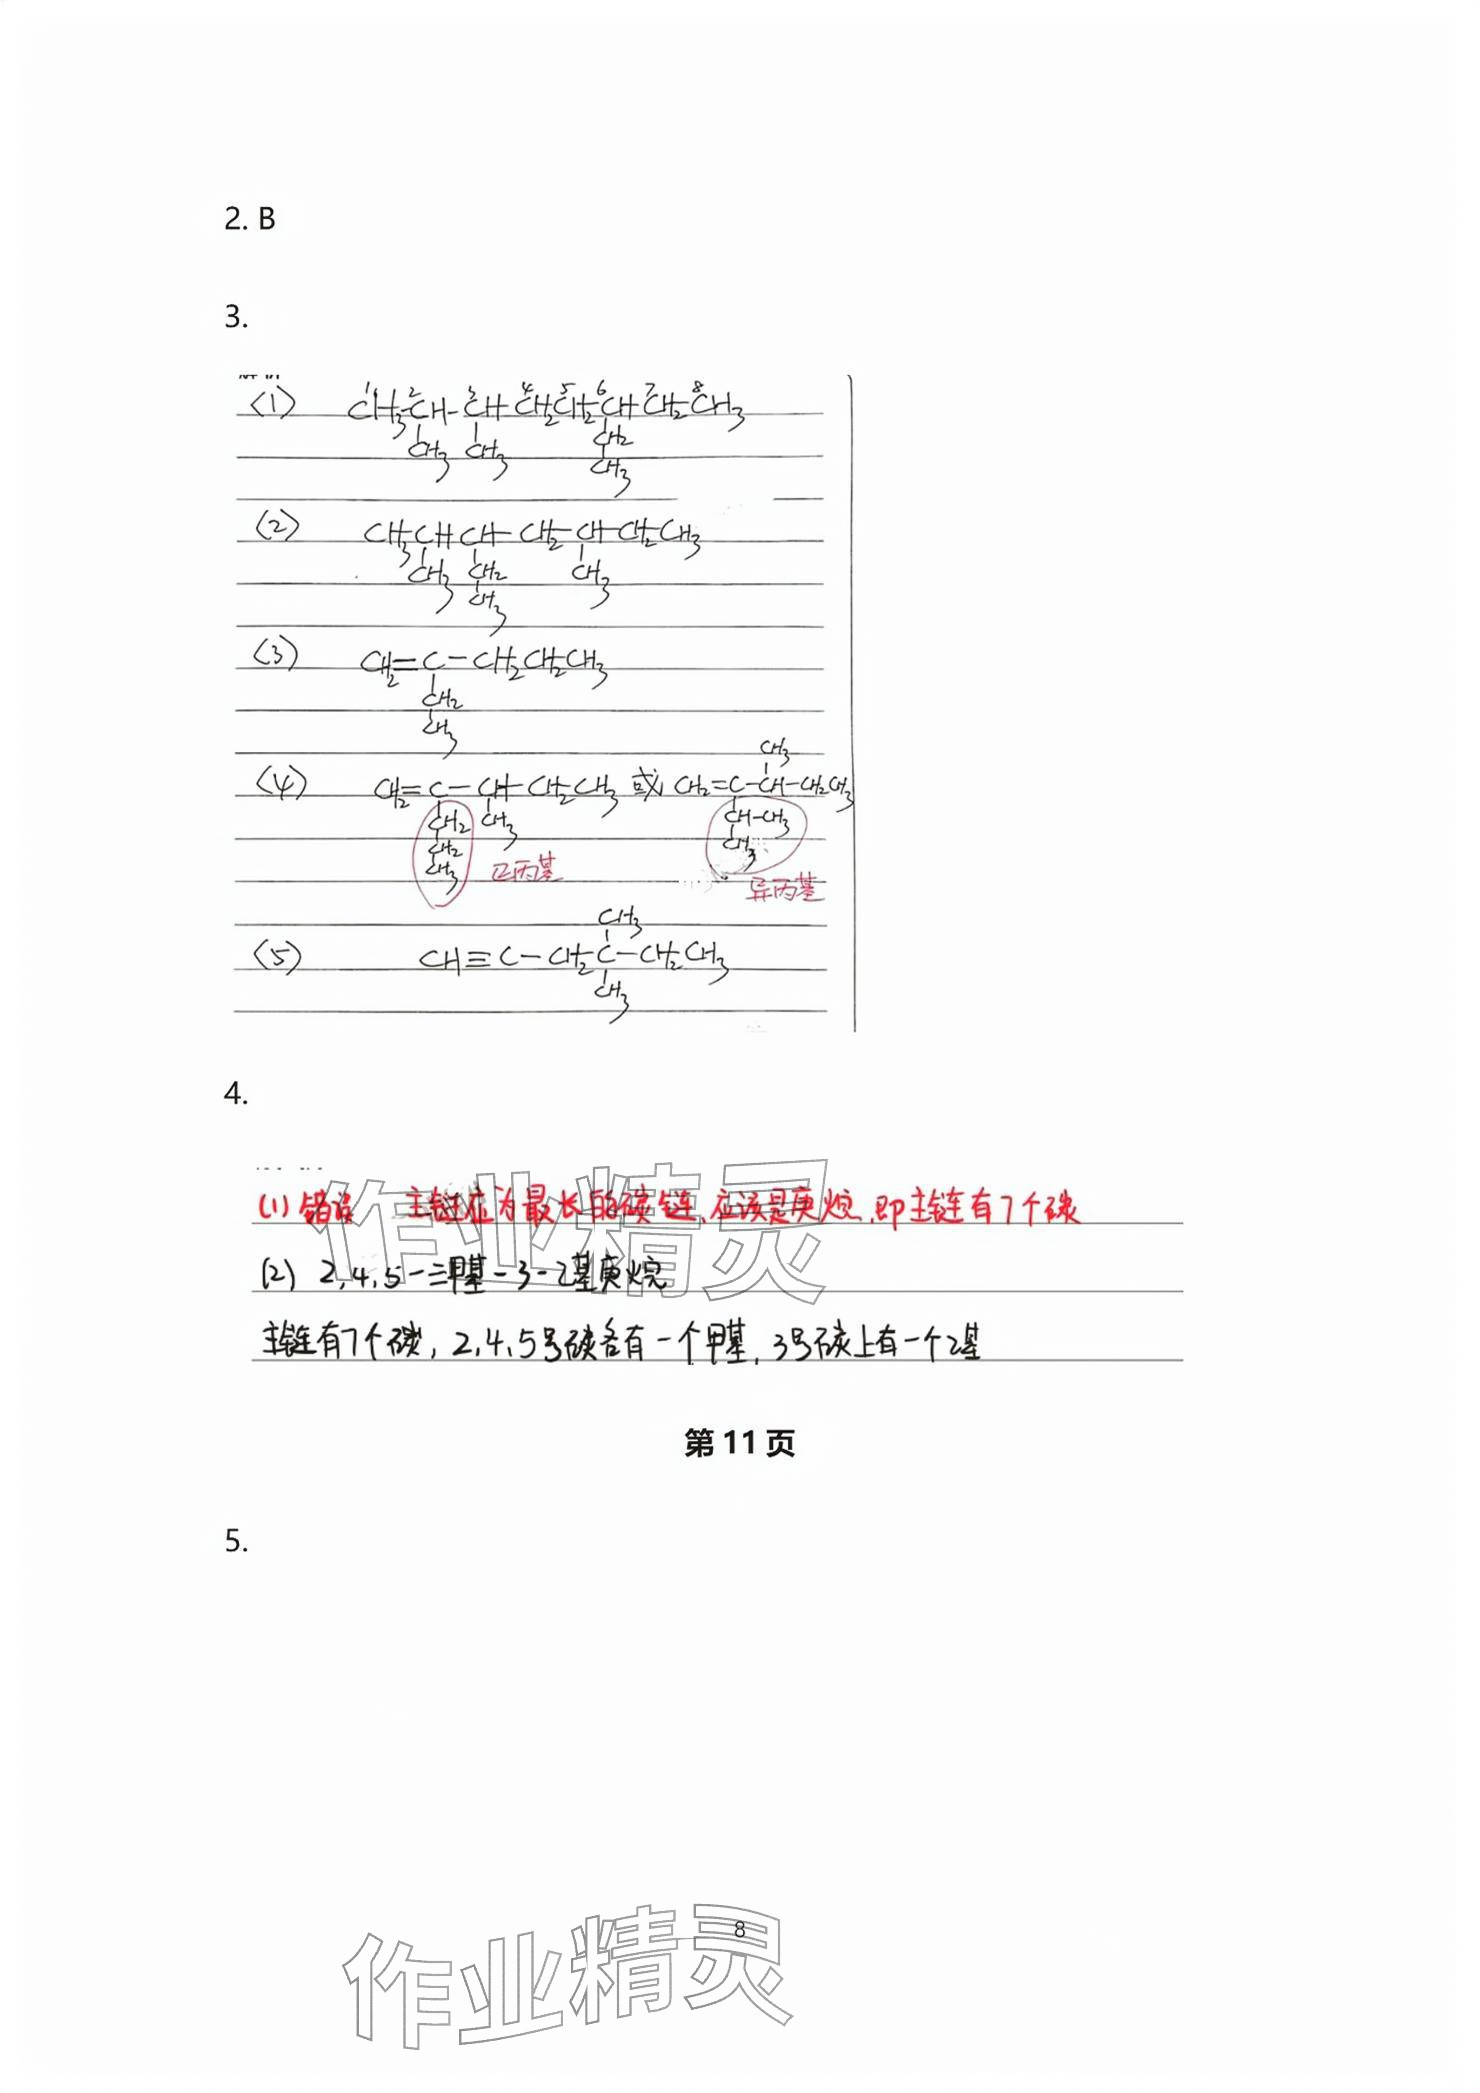 2. B
3.
(1) CH₃-CH-CH CH₂CH₂CH CH₂CH₃
1 2 3 4 5 6 7 8
CH₃ CH₃ CH₂
CH₃
(2) CH₃CHCH-CH₂-CH-CH₂CH₃
CH₃ CH₂ CH₃
CH₃
(3) CH₂=C-CH₂CH₂CH₃
CH₂
CH₃
CH₃
(4) CH₂=C-CH-CH₂CH₃ 或 CH₂=C-CH-CH₂CH₃
CH₂ CH₃ CH-CH₃
CH₂ CH₃
CH₃ 正丙基 异丙基
CH₃
(5) CH≡C-CH₂C-CH₂CH₃
CH₃
4.
(1) 错误 主链应为最长的碳链,应该是庚烷,即主链有7个碳
(2) 2,4,5-三甲基-3-乙基庚烷
主链有7个碳,2,4,5号碳各有一个甲基,3号碳上有一个乙基
第 11 页
5.
8
作业精灵
作业精灵